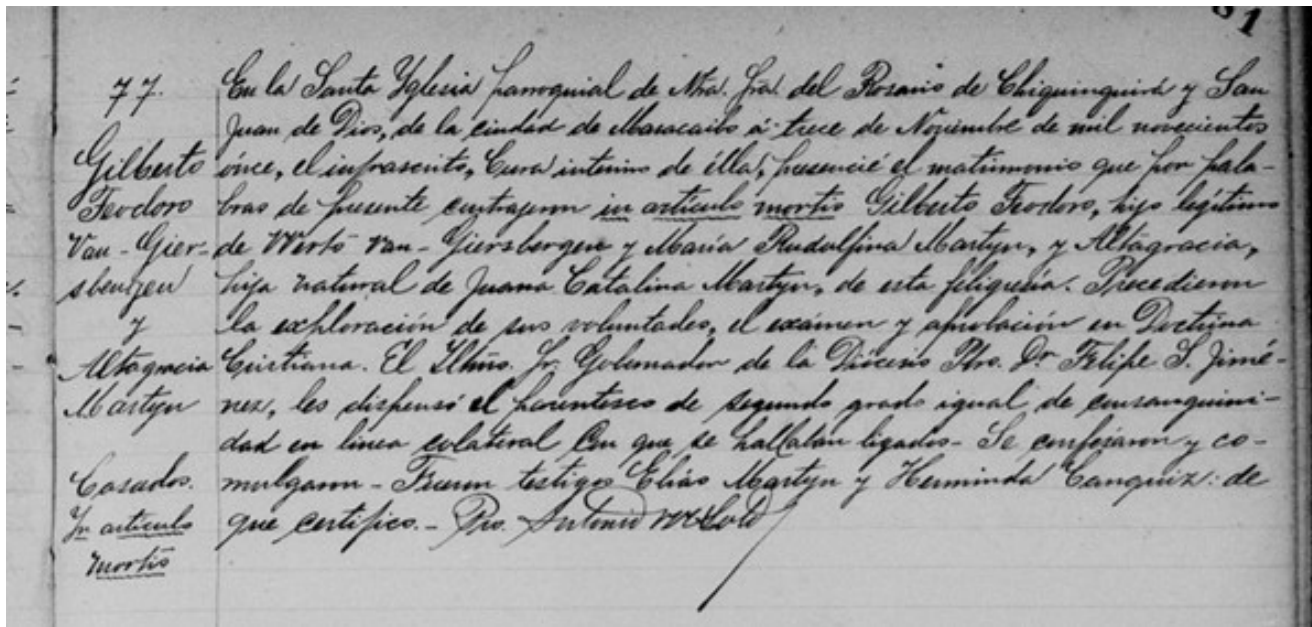 81
77.
Gilberto
Feodoro
Van-Gier-
sbengen
y
Altagracia
Martyn
Casados.
In articulo
mortis
En la Santa Yglesia parroquial de Ntra. Sra. del Rosario de Chiquinquirá y San
Juan de Dios, de la ciudad de Maracaibo á trece de Noviembre de mil novecientos
ónce, el infrascrito, Cura interino de élla, presencié el matrimonio que por pala-
bras de presente contrajeron in artículo mortis Gilberto Feodoro, hijo legítimo
de Werto Van-Giersbergen y María Rudolfina Martyn, y Altagracia,
hija natural de Juana Catalina Martyn, de esta feligresía. Precedieron
la exploración de sus voluntades, el exámen y aprobación en Doctrina
Cristiana. El Iltmo. Sr. Gobernador de la Diócesis Pbro. Dr. Felipe S. Jimé-
nez, les dispensó el parentesco de segundo grado igual de consanguini-
dad en línea colateral con que se hallaban ligados- Se confesaron y co-
mulgaron- Fueron testigos Elías Martyn y Herminda Canquiz: de
que certifico.- Pro. Antonio